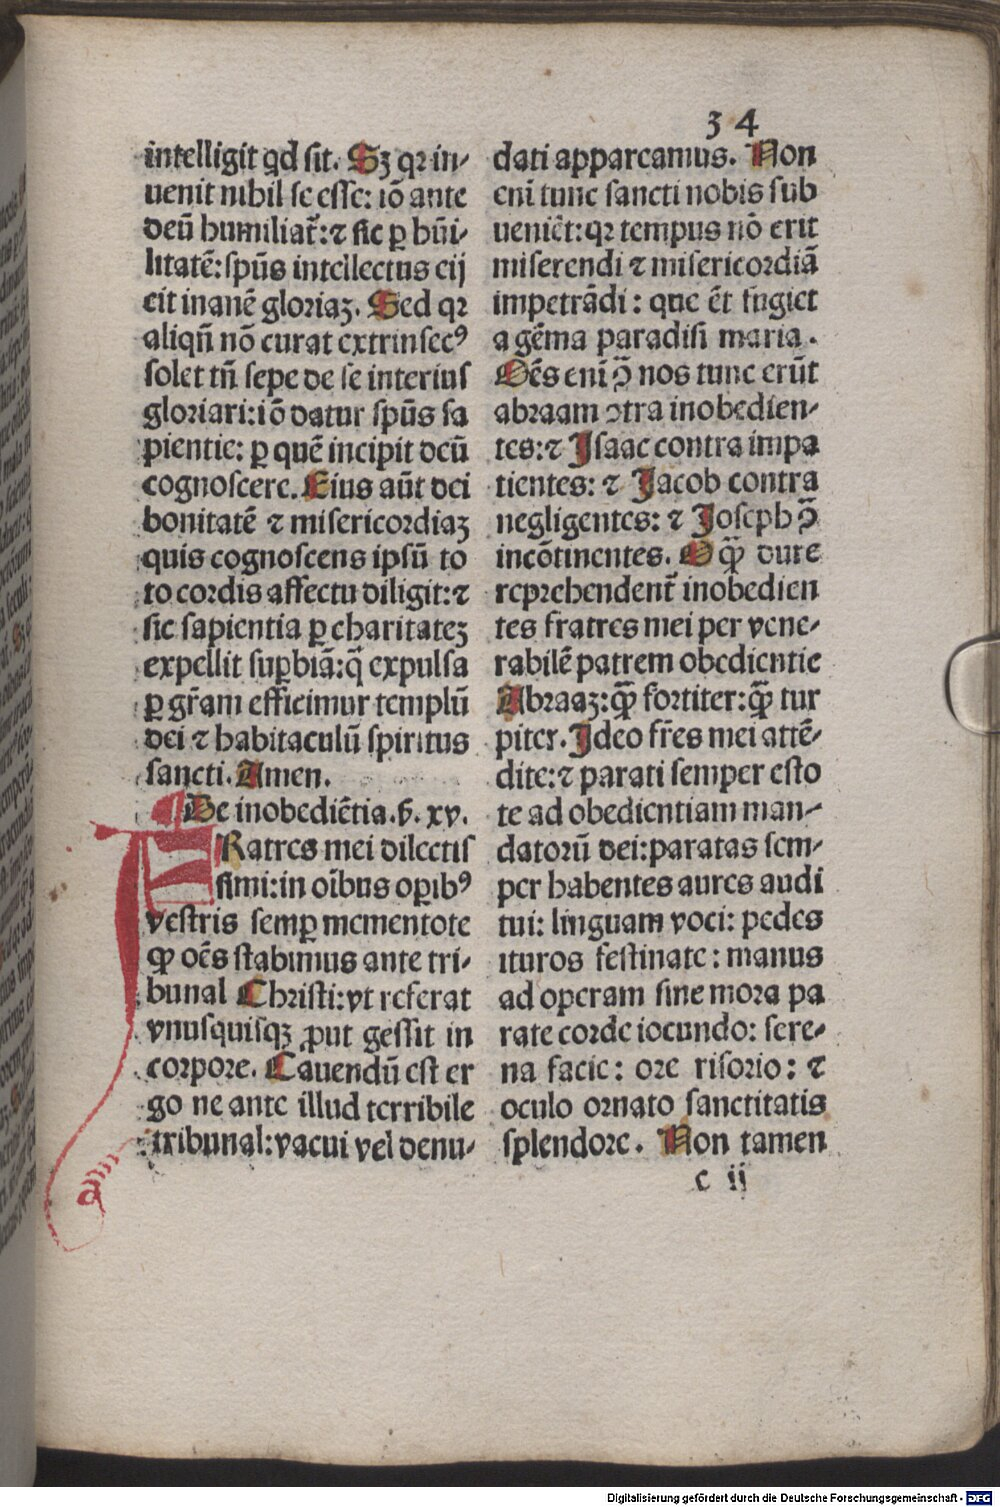 34
intelligit qd sit. Sꝫ qꝛ in-
uenit nihil se esse: iō ante
deū humiliat᷑: ⁊ sic ꝑ hūi-
litatē: spūs intellectus eij
cit inanē gloriaꝫ. Sed qꝛ
aliqn̄ nō curat extrinsecꝰ
solet tn̄ sepe de se interius
gloriari: iō datur spūs sa
pientie: ꝑ quē incipit deū
cognoscere. Eius aūt dei
bonitatē ⁊ misericordiaꝫ
quis cognoscens ipsū to
to cordis affectu diligit: ⁊
sic sapientia ꝑ charitateꝫ
expellit suꝑbiā: q̄ expulsa
ꝑ gr̄am efficimur templū
dei ⁊ habitaculū spiritus
sancti. Amen.
De inobediētia. ß. xv.
FRatres mei dilectis
simi: in oībus oꝑibꝰ
vestris semꝑ mementote
ꝙ oēs stabimus ante tri-
bunal Christi: vt referat
vnusquisqꝫ ꝓut gessit in
corpore. Cauendū est er
go ne ante illud terribile
tribunal: vacui vel denu-
dati appareamus. Non
eni tunc sancti nobis sub
ueniēt: qꝛ tempus nō erit
miserendi ⁊ misericordiā
impetrādi: que ēt fugiet
a gēma paradisi maria.
Oēs eni ꝯ̄ nos tunc erūt
abraam ꝯtra inobedien-
tes: ⁊ Isaac contra impa
tientes: ⁊ Jacob contra
negligentes: ⁊ Joseph ꝯ̄
incōtinentes. O ꝙ̄ dure
reprehendent᷑ inobedien
tes fratres mei per vene-
rabilē patrem obedientie
Abraaꝫ: ꝙ̄ fortiter: ꝙ̄ tur
piter. Ideo fr̄es mei attē-
dite: ⁊ parati semper esto
te ad obedientiam man-
datorū dei: paratas sem-
per habentes aures audi
tui: linguam voci: pedes
ituros festinate: manus
ad operam sine mora pa
rate corde iocundo: sere-
na facie: ore risorio: ⁊
oculo ornato sanctitatis
splendore. Non tamen
c ii
Digitalisierung gefördert durch die Deutsche Forschungsgemeinschaft - DFG